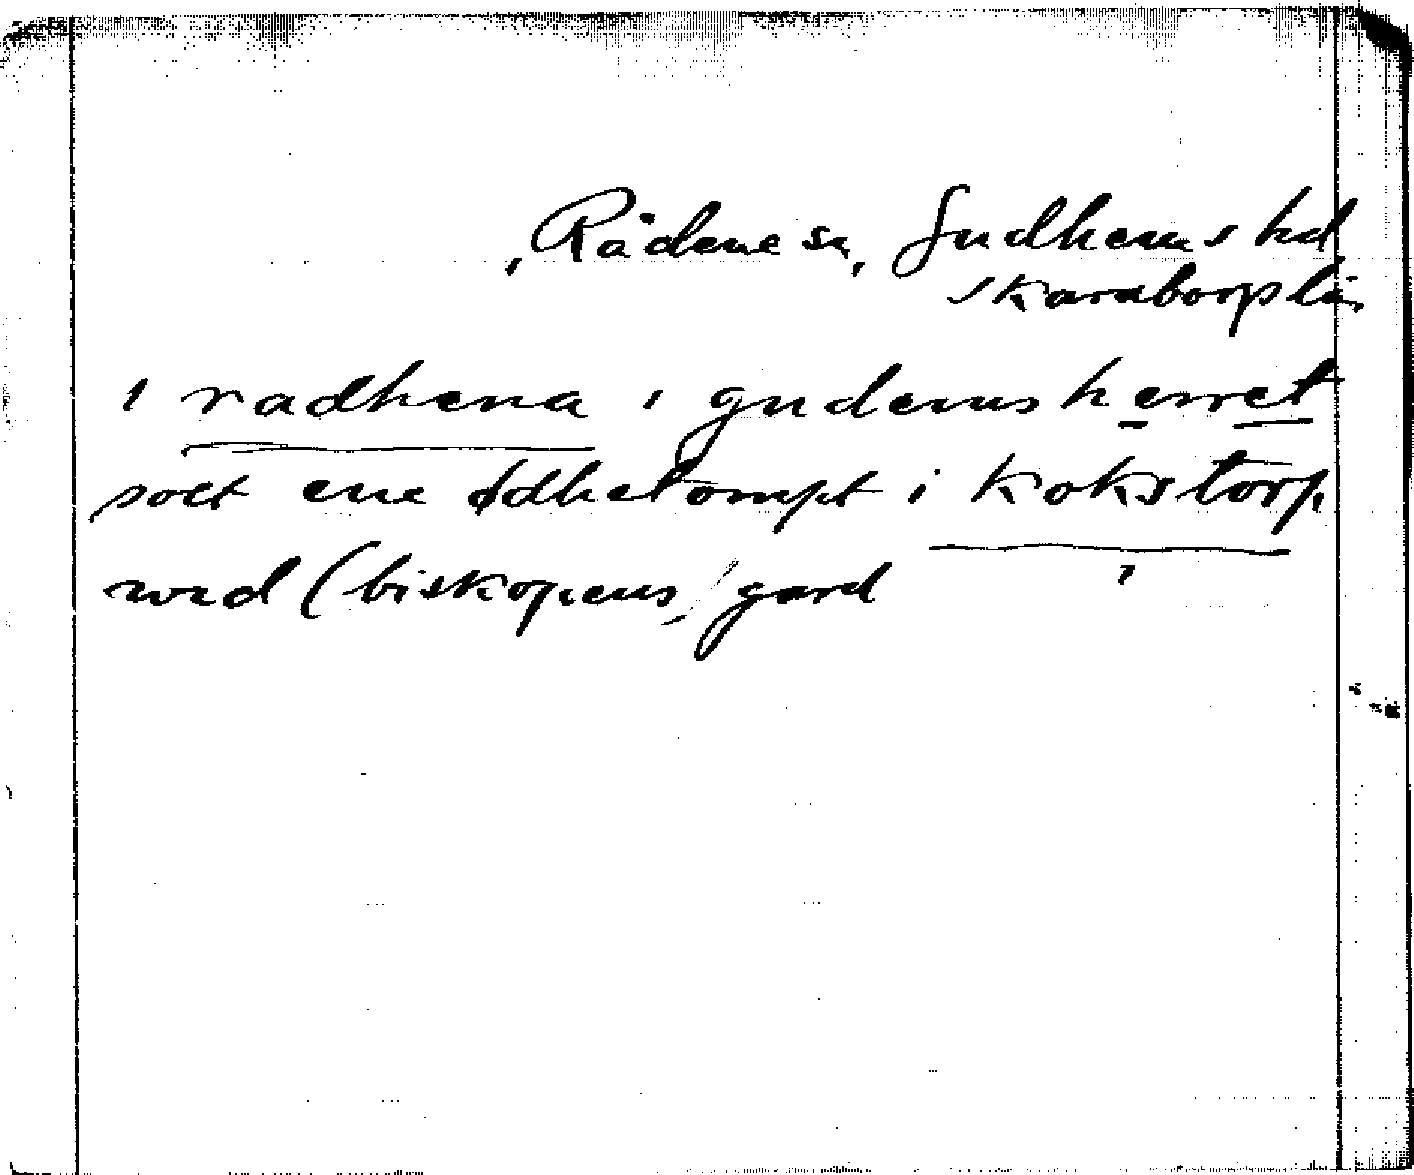 , Rådene sn, Gudhems hd
Skaraborgs län
i radhena i gudemsherret
solt ene ödhetompt i Kokstorp
wed (biskopens) gard